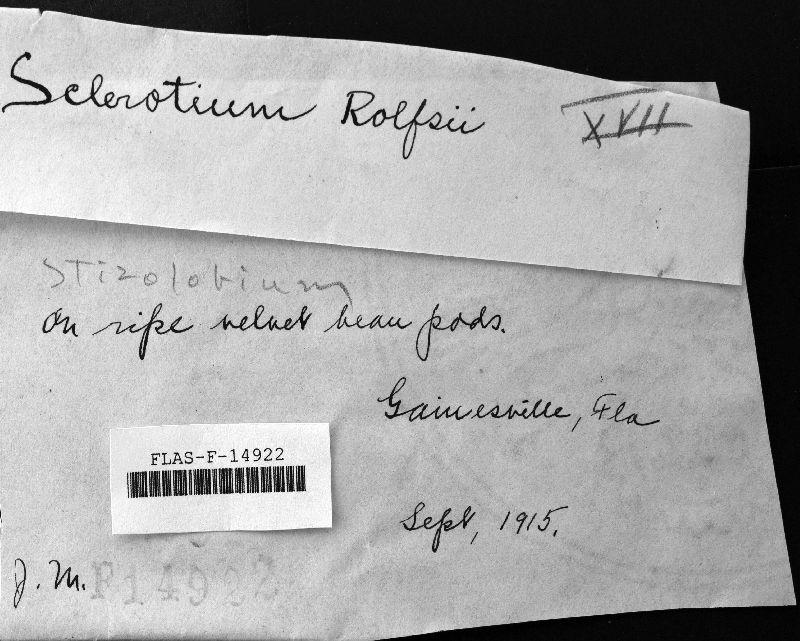 Sclerotium Rolfsii
XVII
Stizolobium
On ripe velvet bean pods.
Gainesville, Fla
FLAS-F-14922
Sept, 1915.
J. M.
F14922